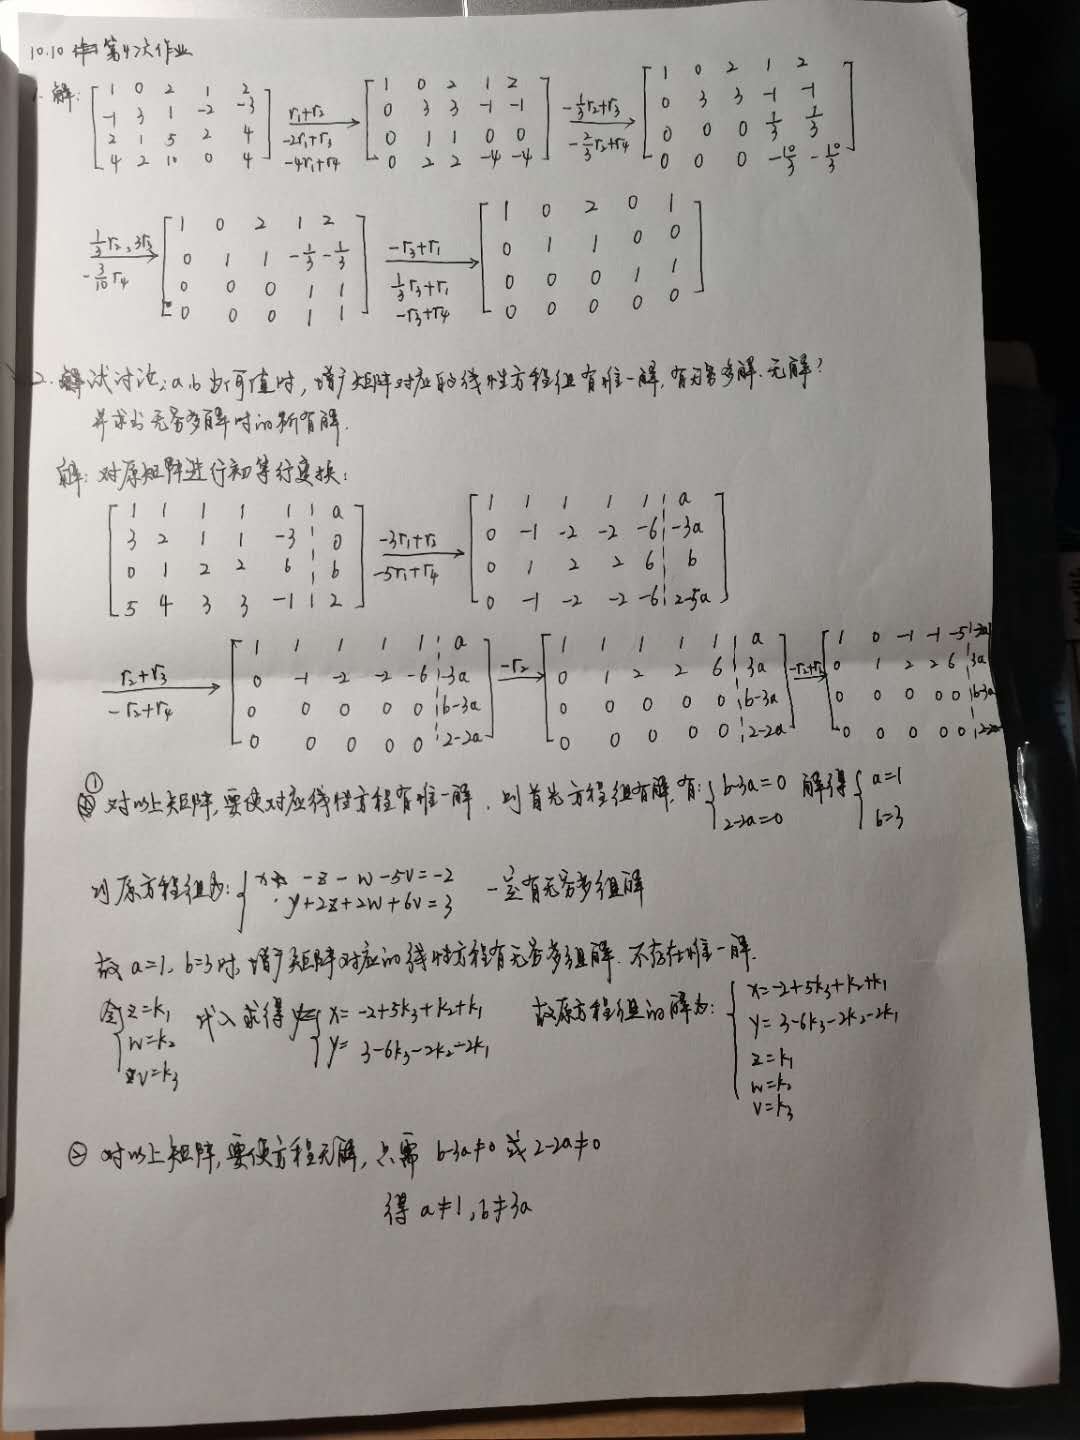 10.10 第4次作业
1. 解: [1 0 2 1 2; -1 3 1 -2 -3; 2 1 5 2 4; 4 2 10 0 4] r₁+r₂, -2r₁+r₃, -4r₁+r₄ → [1 0 2 1 2; 0 3 3 -1 -1; 0 1 1 0 0; 0 2 2 -4 -4] -1/3r₂+r₃, -2/3r₂+r₄ → [1 0 2 1 2; 0 3 3 -1 -1; 0 0 0 1/3 1/3; 0 0 0 -10/3 -10/3]
1/3r₂, 3r₃, -3/10r₄ → [1 0 2 1 2; 0 1 1 -1/3 -1/3; 0 0 0 1 1; 0 0 0 1 1] -r₃+r₁, 1/3r₃+r₁, -r₃+r₄ → [1 0 2 0 1; 0 1 1 0 0; 0 0 0 1 1; 0 0 0 0 0]
2. 试讨论: a,b为何值时, 增广矩阵对应的线性方程组有惟一解, 有无穷多解、无解?
并求出无穷多解时的所有解.
解: 对原矩阵进行初等行变换:
[1 1 1 1 1 ¦ a; 3 2 1 1 -3 ¦ 0; 0 1 2 2 6 ¦ b; 5 4 3 3 -1 ¦ 2] -3r₁+r₂, -5r₁+r₄ → [1 1 1 1 1 ¦ a; 0 -1 -2 -2 -6 ¦ -3a; 0 1 2 2 6 ¦ b; 0 -1 -2 -2 -6 ¦ 2-5a]
r₂+r₃, -r₂+r₄ → [1 1 1 1 1 ¦ a; 0 -1 -2 -2 -6 ¦ -3a; 0 0 0 0 0 ¦ b-3a; 0 0 0 0 0 ¦ 2-2a] -r₂ → [1 1 1 1 1 ¦ a; 0 1 2 2 6 ¦ 3a; 0 0 0 0 0 ¦ b-3a; 0 0 0 0 0 ¦ 2-2a] -r₂+r₁ → [1 0 -1 -1 -5 ¦ -2a; 0 1 2 2 6 ¦ 3a; 0 0 0 0 0 ¦ b-3a; 0 0 0 0 0 ¦ 2-2a]
① 对以上矩阵, 要使对应线性方程有惟一解, 则首先方程组有解, 有: {b-3a=0 2-2a=0 解得 {a=1 b=3
则原方程组为: {x -z-w-5v=-2 y+2z+2w+6v=3 一定有无穷多组解
故 a=1, b=3时, 增广矩阵对应的线性方程有无穷多组解, 不存在惟一解.
令{z=k₁ w=k₂ v=k₃ 代入求得 {x=-2+5k₃+k₂+k₁ y=3-6k₃-2k₂-2k₁ 故原方程组的解为: {x=-2+5k₃+k₂+k₁ y=3-6k₃-2k₂-2k₁ z=k₁ w=k₂ v=k₃
② 对以上矩阵, 要使方程无解, 只需 b-3a≠0 或 2-2a≠0
得 a≠1, b≠3a